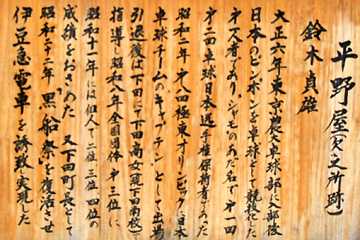 平野屋(欠乏所跡)
鈴木貞雄
大正六年東京農大卓球部に入部後
日本のピンポンを卓球として競技化した
オ一人者であり、シャモのあだ名で、オ一回
オ二回卓球日本選手権保持者であった
昭和二年オ八回極東オリンピックに日本
卓球チームのキャプテンとして出場
引退後は下田にて下田高女現下田南校で
指導し昭和八年全国団体オ三位に
昭和十一年には個人で二位 三位 四位の
成績をおさめた 又下田町長として
昭和二十二年「黒船祭」を復活させ
伊豆急電車を誘致し実現した